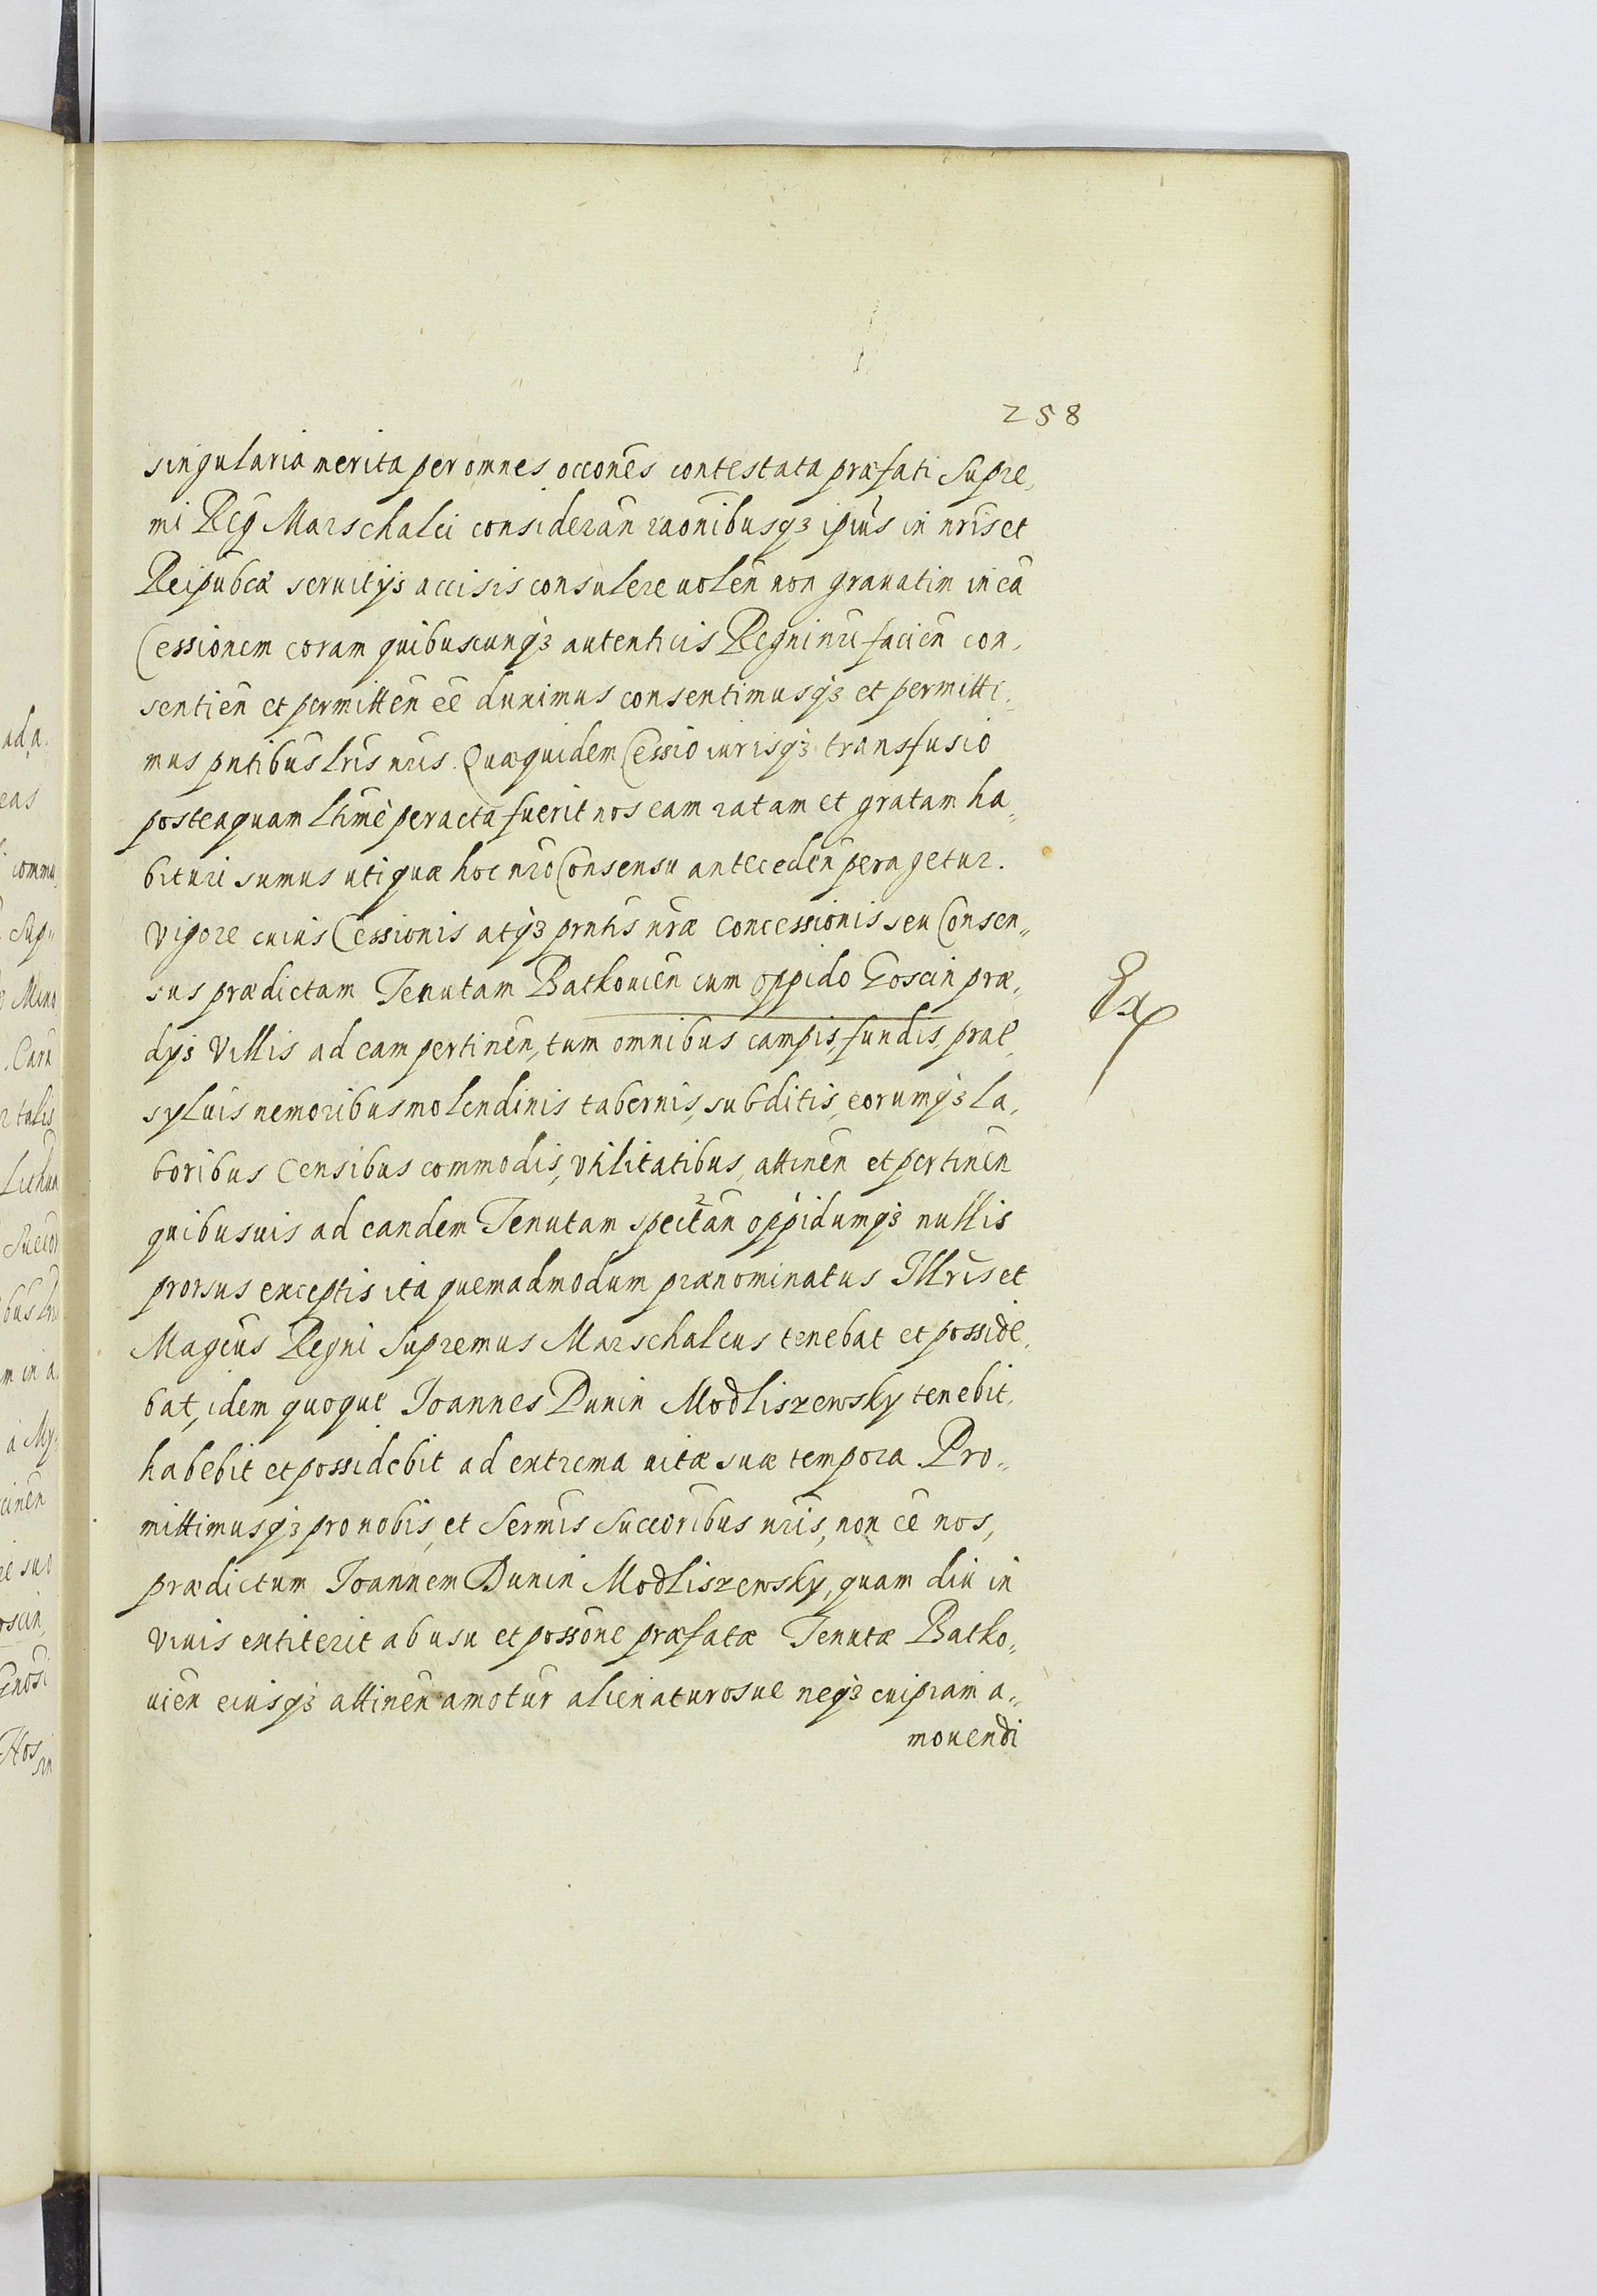 258
singularia merita per omnes occōnes contestata præfati Supre,
mi Reg̃ Marschalci considerañ raonibusqʒ ipiūs in nrīs et
Reipubcæ̃ seruitijs accisis consulere uoleñ non grauatim in eā
Cessionem coram quibuscunqʒ autenticis Regni nrī facieñ con,
sentieñ et permitteñ eē duximus consentimusqʒ et permitti,
mus pn̄tibus lrīs nrīs. Quæquidem Cessio iurisqʒ transfusio
posteaquam lt̄imè peracta fuerit nos eam ratam et gratam ha,,
bituri sumus uti quæ hoc nrō Consensu antecedeñ peragetur.
Vigore cuius Cessionis atqʒ prntīs nrǣ concessionis seu Consen,,
sus prædictam Tenutam Batkouieñ cum oppido Goscin præ,,
dijs Villis ad eam pertineñ, tum omnibus campis, fundis, prat̄,
syluis nemoribus molendinis tabernis, subditis, eorumqʒ la,
boribus Censibus commodis, vtilitatibus, attineñ et pertineñ
quibusuis ad eandem Tenutam spectañ oppidumqʒ nullis
prorsus exceptis ita quemadmodum prænominatus Illrīs et
Magcūs Regni Supremus Marschalcus tenebat et posside,
bat, idem quoque Joannes Dunin Modliszewsky tenebit,
habebit et possidebit ad extrema uitæ suæ tempora. Pro,,
mittimusqʒ pro nobis, et Sermīs Succoribūs nrīs, non eē nos,
prædictum Joannem Dunin Modliszewsky, quam diu in
viuis extiterit ab usu et possōne præfatæ Tenutæ Batko,,
uieñ eiusqʒ attineñ amotur̄ alienaturosue neqʒ cuipiam a,,
mouendi
Ex